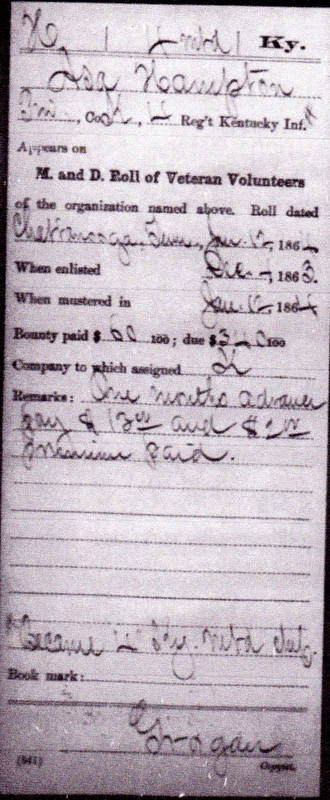 H | 4 Mtd | Ky.
Asa Hampton
Co. , 4 Reg't Kentucky Inf.*
Appears on
M. and D. Roll of Veteran Volunteers
of the organization named above. Roll dated
Chattanooga, Tenn., Jan. 12, 1864.
When enlisted Dec , 1863.
When mustered in Jan. 12, 1864
Bounty paid $ 60 100; due $ 340 100
Company to which assigned
Remarks: One months advance
pay $ 13 00 and $ 2 00
premium paid.
*Became 4" Ky. Mtd Inf.
Book mark:
Grogan
(341) Copyist.